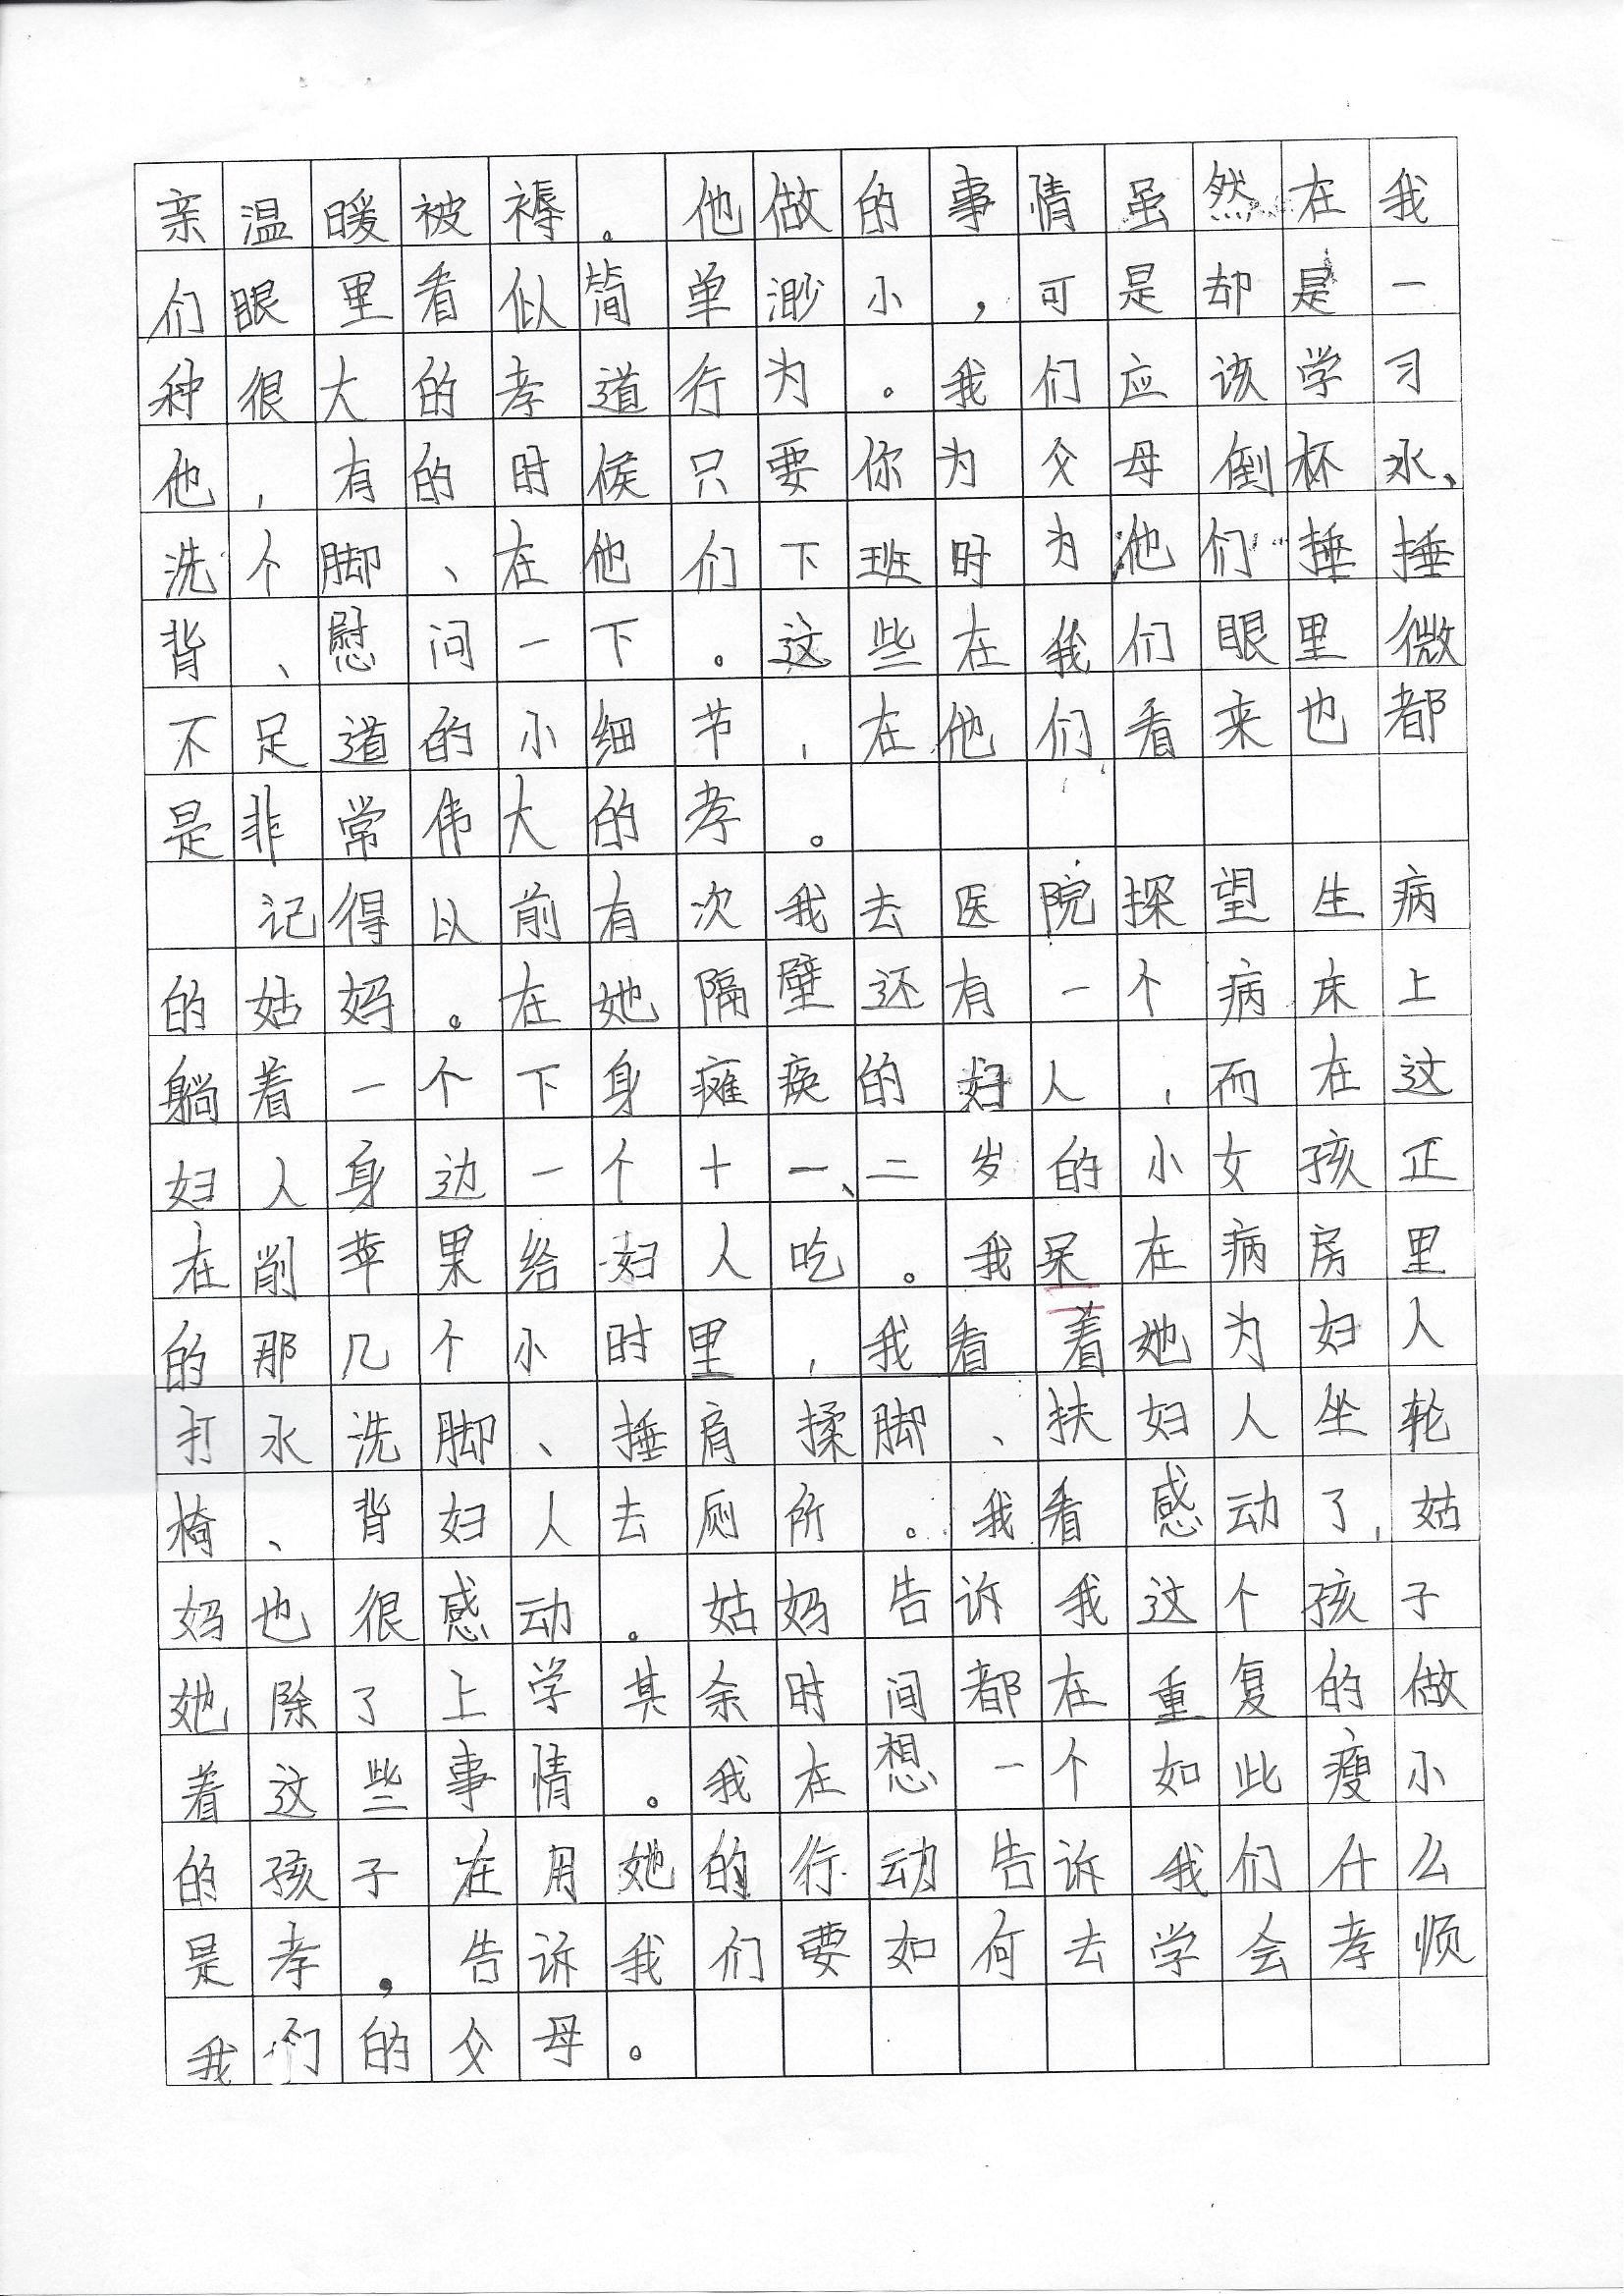 亲温暖被褥。他做的事情虽然在我
们眼里看似简单渺小，可是却是一
种很大的孝道行为。我们应该学习
他，有的时候只要你为父母倒杯水、
洗个脚、在他们下班时为他们捶捶
背、慰问一下。这些在我们眼里微
不足道的小细节，在他们看来也都
是非常伟大的孝。
记得以前有次我去医院探望生病
的姑妈。在她隔壁还有一个病床上
躺着一个下身瘫痪的妇人，而在这
妇人身边一个十一、二岁的小女孩正
在削苹果给妇人吃。我呆在病房里
的那几个小时里，我看着她为妇人
打水洗脚、捶肩揉脚、扶妇人坐轮
椅、背妇人去厕所。我看感动了，姑
妈也很感动。姑妈告诉我这个孩子
她除了上学其余时间都在重复的做
着这些事情。我在想一个如此瘦小
的孩子在用她的行动告诉我们什么
是孝，告诉我们要如何去学会孝顺
我们的父母。